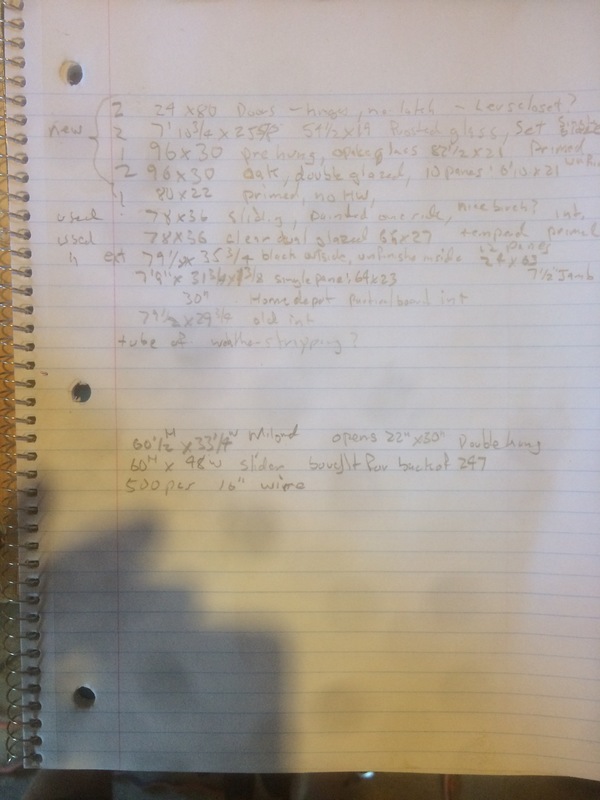 2 24 x80 Doors - hinges, no latch - Levs closet?
new 2 7' 10 3/4 x 25 54 1/2 x 19 Frosted glass, Set
1 96 x 30 pre hung, opake glass 82 1/2 x 21 Primed
2 96 x 30 Oak, double glazed, 10 panes: 10 x 21
1 80 x 22 primed, no HW,
used 78 x 36 sliding, painted one side, nice birch? int,
used 78 x 36 clear dual glazed 66 x 27 tempered primed
ext 79 1/2 x 35 3/4 black outside, unfinished inside 12 panes
7'9" x 31 3/4 x 1 3/8 single pane: 64 x 23 7 1/2" Jamb
30" Home depot particalboard int
79 1/2 x 29 old int
tube of weatherstripping?
60 1/2 H x 33 1/4 W Milgard opens 22" x 50" Double hung
60 H x 48 W slider bought for back of 247
500 pcs 16" wire